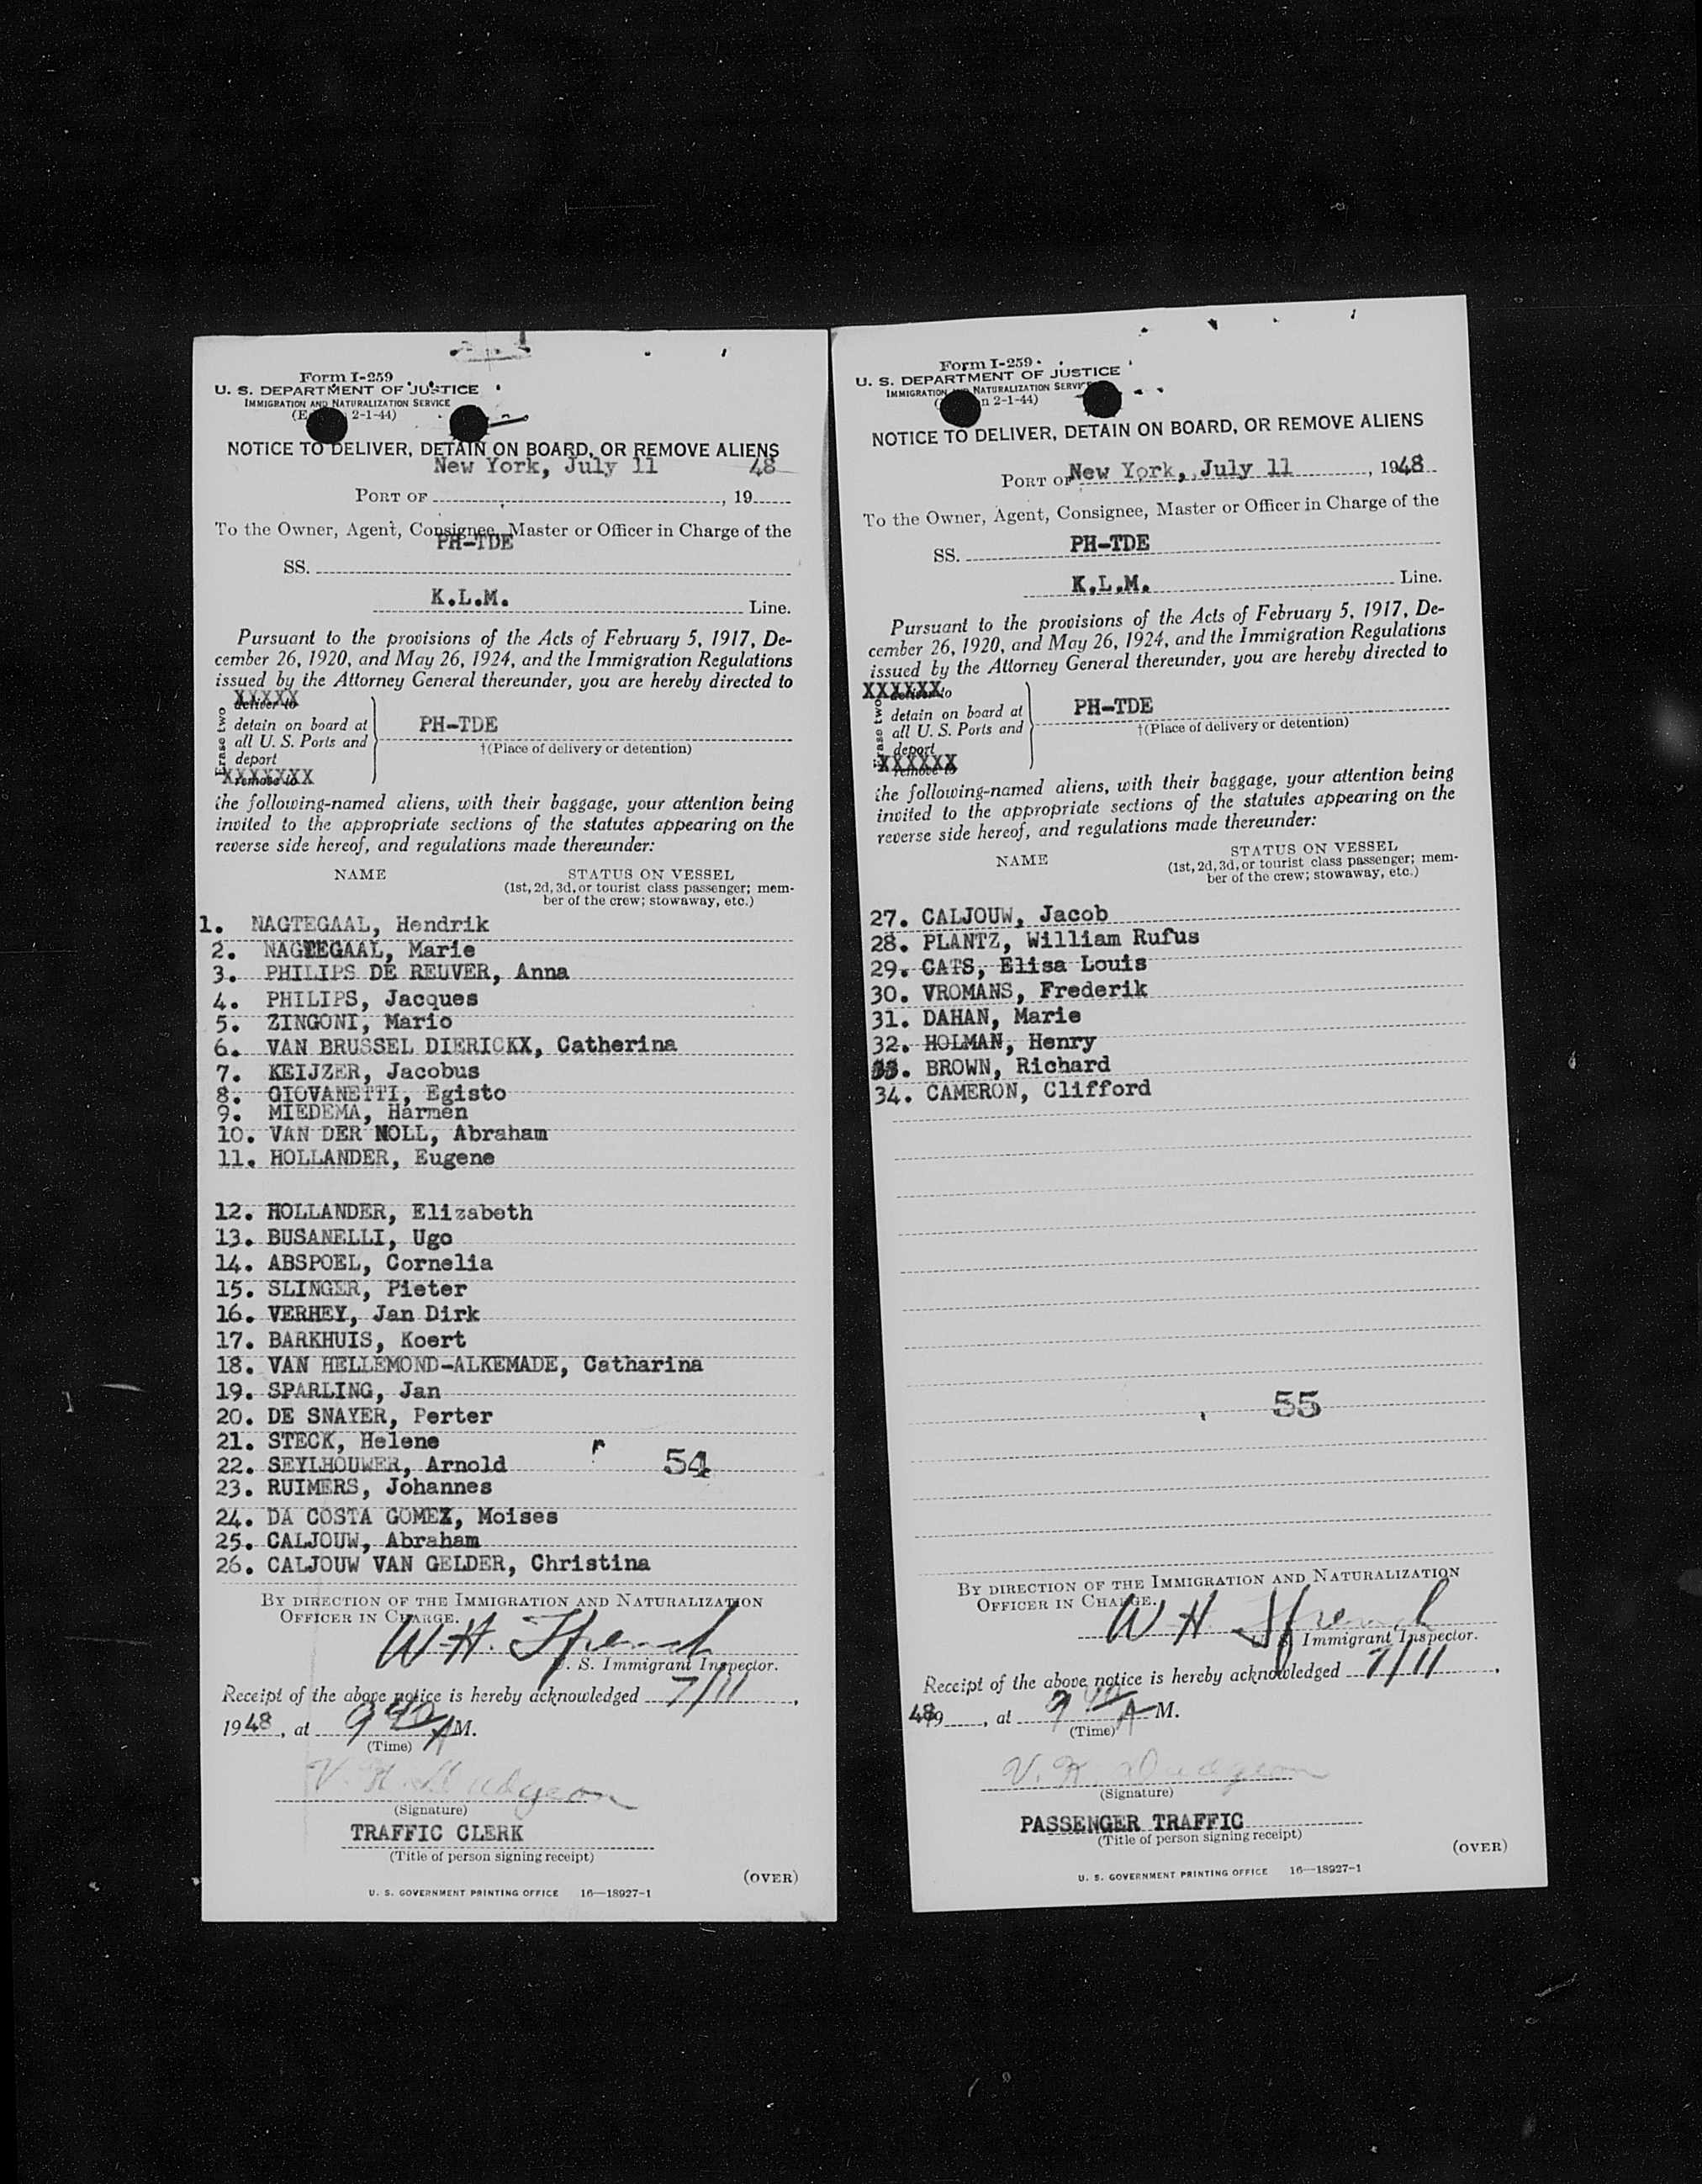 Form I-259
U. S. DEPARTMENT OF JUSTICE
IMMIGRATION AND NATURALIZATION SERVICE
2-1-44)
NOTICE TO DELIVER, DETAIN ON BOARD, OR REMOVE ALIENS
New York, July 11 48
PORT OF , 19
To the Owner, Agent, Consignee, Master or Officer in Charge of the
PH-TDE
SS.
K.L.M. Line.
Pursuant to the provisions of the Acts of February 5, 1917, De-
cember 26, 1920, and May 26, 1924, and the Immigration Regulations
issued by the Attorney General thereunder, you are hereby directed to
XXXXX
deliver to
Erase two
detain on board at
all U. S. Ports and
deport
PH-TDE
†(Place of delivery or detention)
XXXXXXX
remove to
the following-named aliens, with their baggage, your attention being
invited to the appropriate sections of the statutes appearing on the
reverse side hereof, and regulations made thereunder:
NAME STATUS ON VESSEL
(1st, 2d, 3d, or tourist class passenger; mem-
ber of the crew; stowaway, etc.)
1. NAGTEGAAL, Hendrik
2. NAGTEGAAL, Marie
3. PHILIPS DE REUVER, Anna
4. PHILIPS, Jacques
5. ZINGONI, Mario
6. VAN BRUSSEL DIERICKX, Catherina
7. KEIJZER, Jacobus
8. GIOVANETTI, Egisto
9. MIEDEMA, Harmen
10. VAN DER NOLL, Abraham
11. HOLLANDER, Eugene
12. HOLLANDER, Elizabeth
13. BUSANELLI, Ugo
14. ABSPOEL, Cornelia
15. SLINGER, Pieter
16. VERHEY, Jan Dirk
17. BARKHUIS, Koert
18. VAN HELLEMOND-ALKEMADE, Catharina
19. SPARLING, Jan
20. DE SNAYER, Perter
21. STECK, Helene
22. SEYLHOUWER, Arnold 54
23. RUIMERS, Johannes
24. DA COSTA GOMEZ, Moises
25. CALJOUW, Abraham
26. CALJOUW VAN GELDER, Christina
BY DIRECTION OF THE IMMIGRATION AND NATURALIZATION
OFFICER IN CHARGE.
W. H.
U. S. Immigrant Inspector.
Receipt of the above notice is hereby acknowledged 7/11 ,
1948, at 9 40 A M.
(Time)
V. H. Dudgeon
(Signature)
TRAFFIC CLERK
(Title of person signing receipt)
(OVER)
U. S. GOVERNMENT PRINTING OFFICE 16—18927-1
Form I-259
U. S. DEPARTMENT OF JUSTICE
IMMIGRATION AND NATURALIZATION SERVICE
n 2-1-44)
NOTICE TO DELIVER, DETAIN ON BOARD, OR REMOVE ALIENS
PORT OF New York, July 11 , 1948
To the Owner, Agent, Consignee, Master or Officer in Charge of the
SS. PH-TDE
K.L.M. Line.
Pursuant to the provisions of the Acts of February 5, 1917, De-
cember 26, 1920, and May 26, 1924, and the Immigration Regulations
issued by the Attorney General thereunder, you are hereby directed to
XXXXXX
deliver to
Erase two
detain on board at
all U. S. Ports and
deport
PH-TDE
†(Place of delivery or detention)
XXXXXX
remove to
the following-named aliens, with their baggage, your attention being
invited to the appropriate sections of the statutes appearing on the
reverse side hereof, and regulations made thereunder:
NAME STATUS ON VESSEL
(1st, 2d, 3d, or tourist class passenger; mem-
ber of the crew; stowaway, etc.)
27. CALJOUW, Jacob
28. PLANTZ, William Rufus
29. CATS, Elisa Louis
30. VROMANS, Frederik
31. DAHAN, Marie
32. HOLMAN, Henry
33. BROWN, Richard
34. CAMERON, Clifford
55
BY DIRECTION OF THE IMMIGRATION AND NATURALIZATION
OFFICER IN CHARGE.
W H
Immigrant Inspector.
Receipt of the above notice is hereby acknowledged 7/11 ,
48 19 , at 9 40 A M.
(Time)
V. H. Dudgeon
(Signature)
PASSENGER TRAFFIC
(Title of person signing receipt)
(OVER)
U. S. GOVERNMENT PRINTING OFFICE 16—18927-1